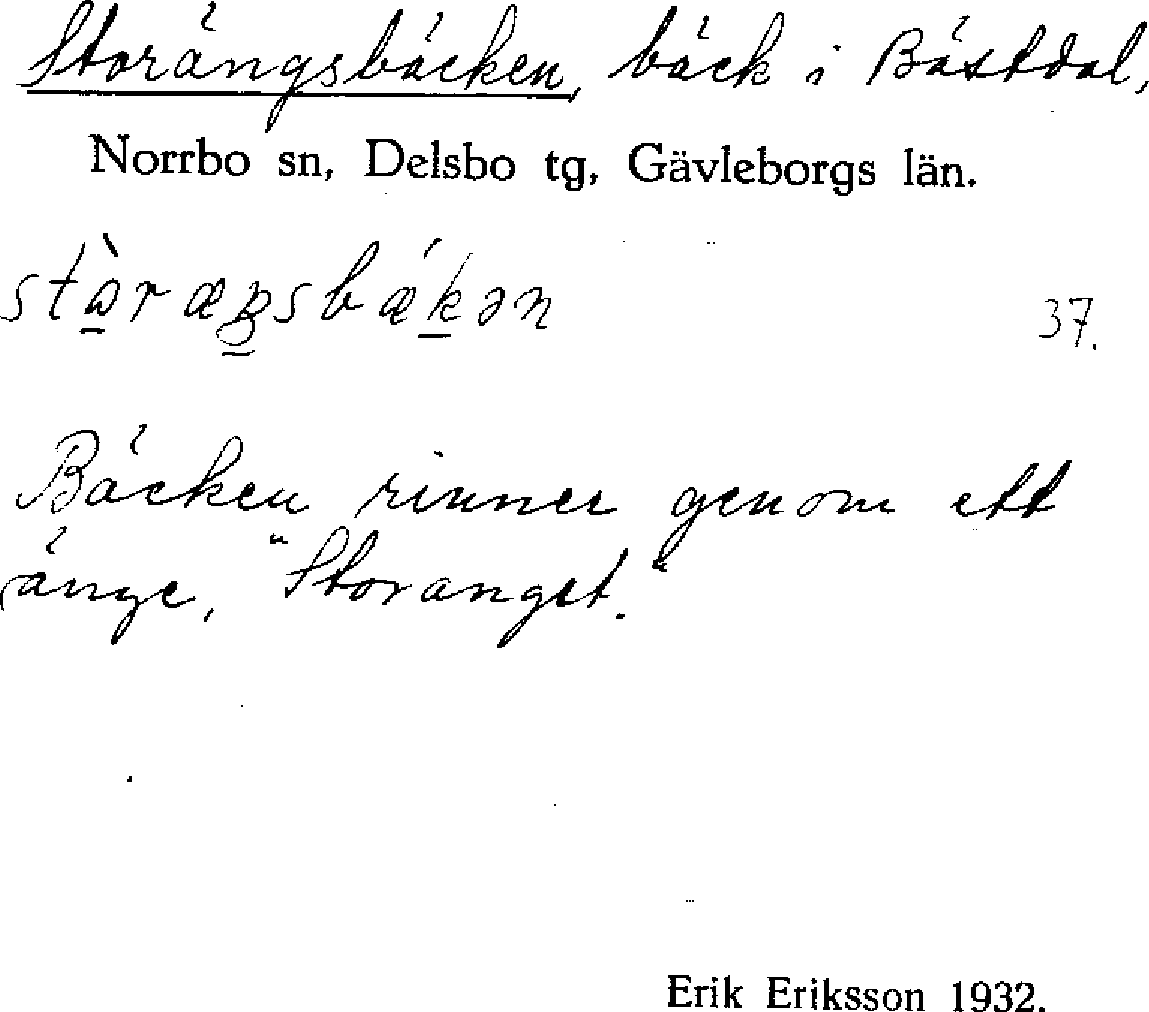 Storängsbäcken, bäck i Bästdal,
Norrbo sn, Delsbo tg, Gävleborgs län.
37.
Bäcken rinner genom ett
änge, "Storanget."
Erik Eriksson 1932.